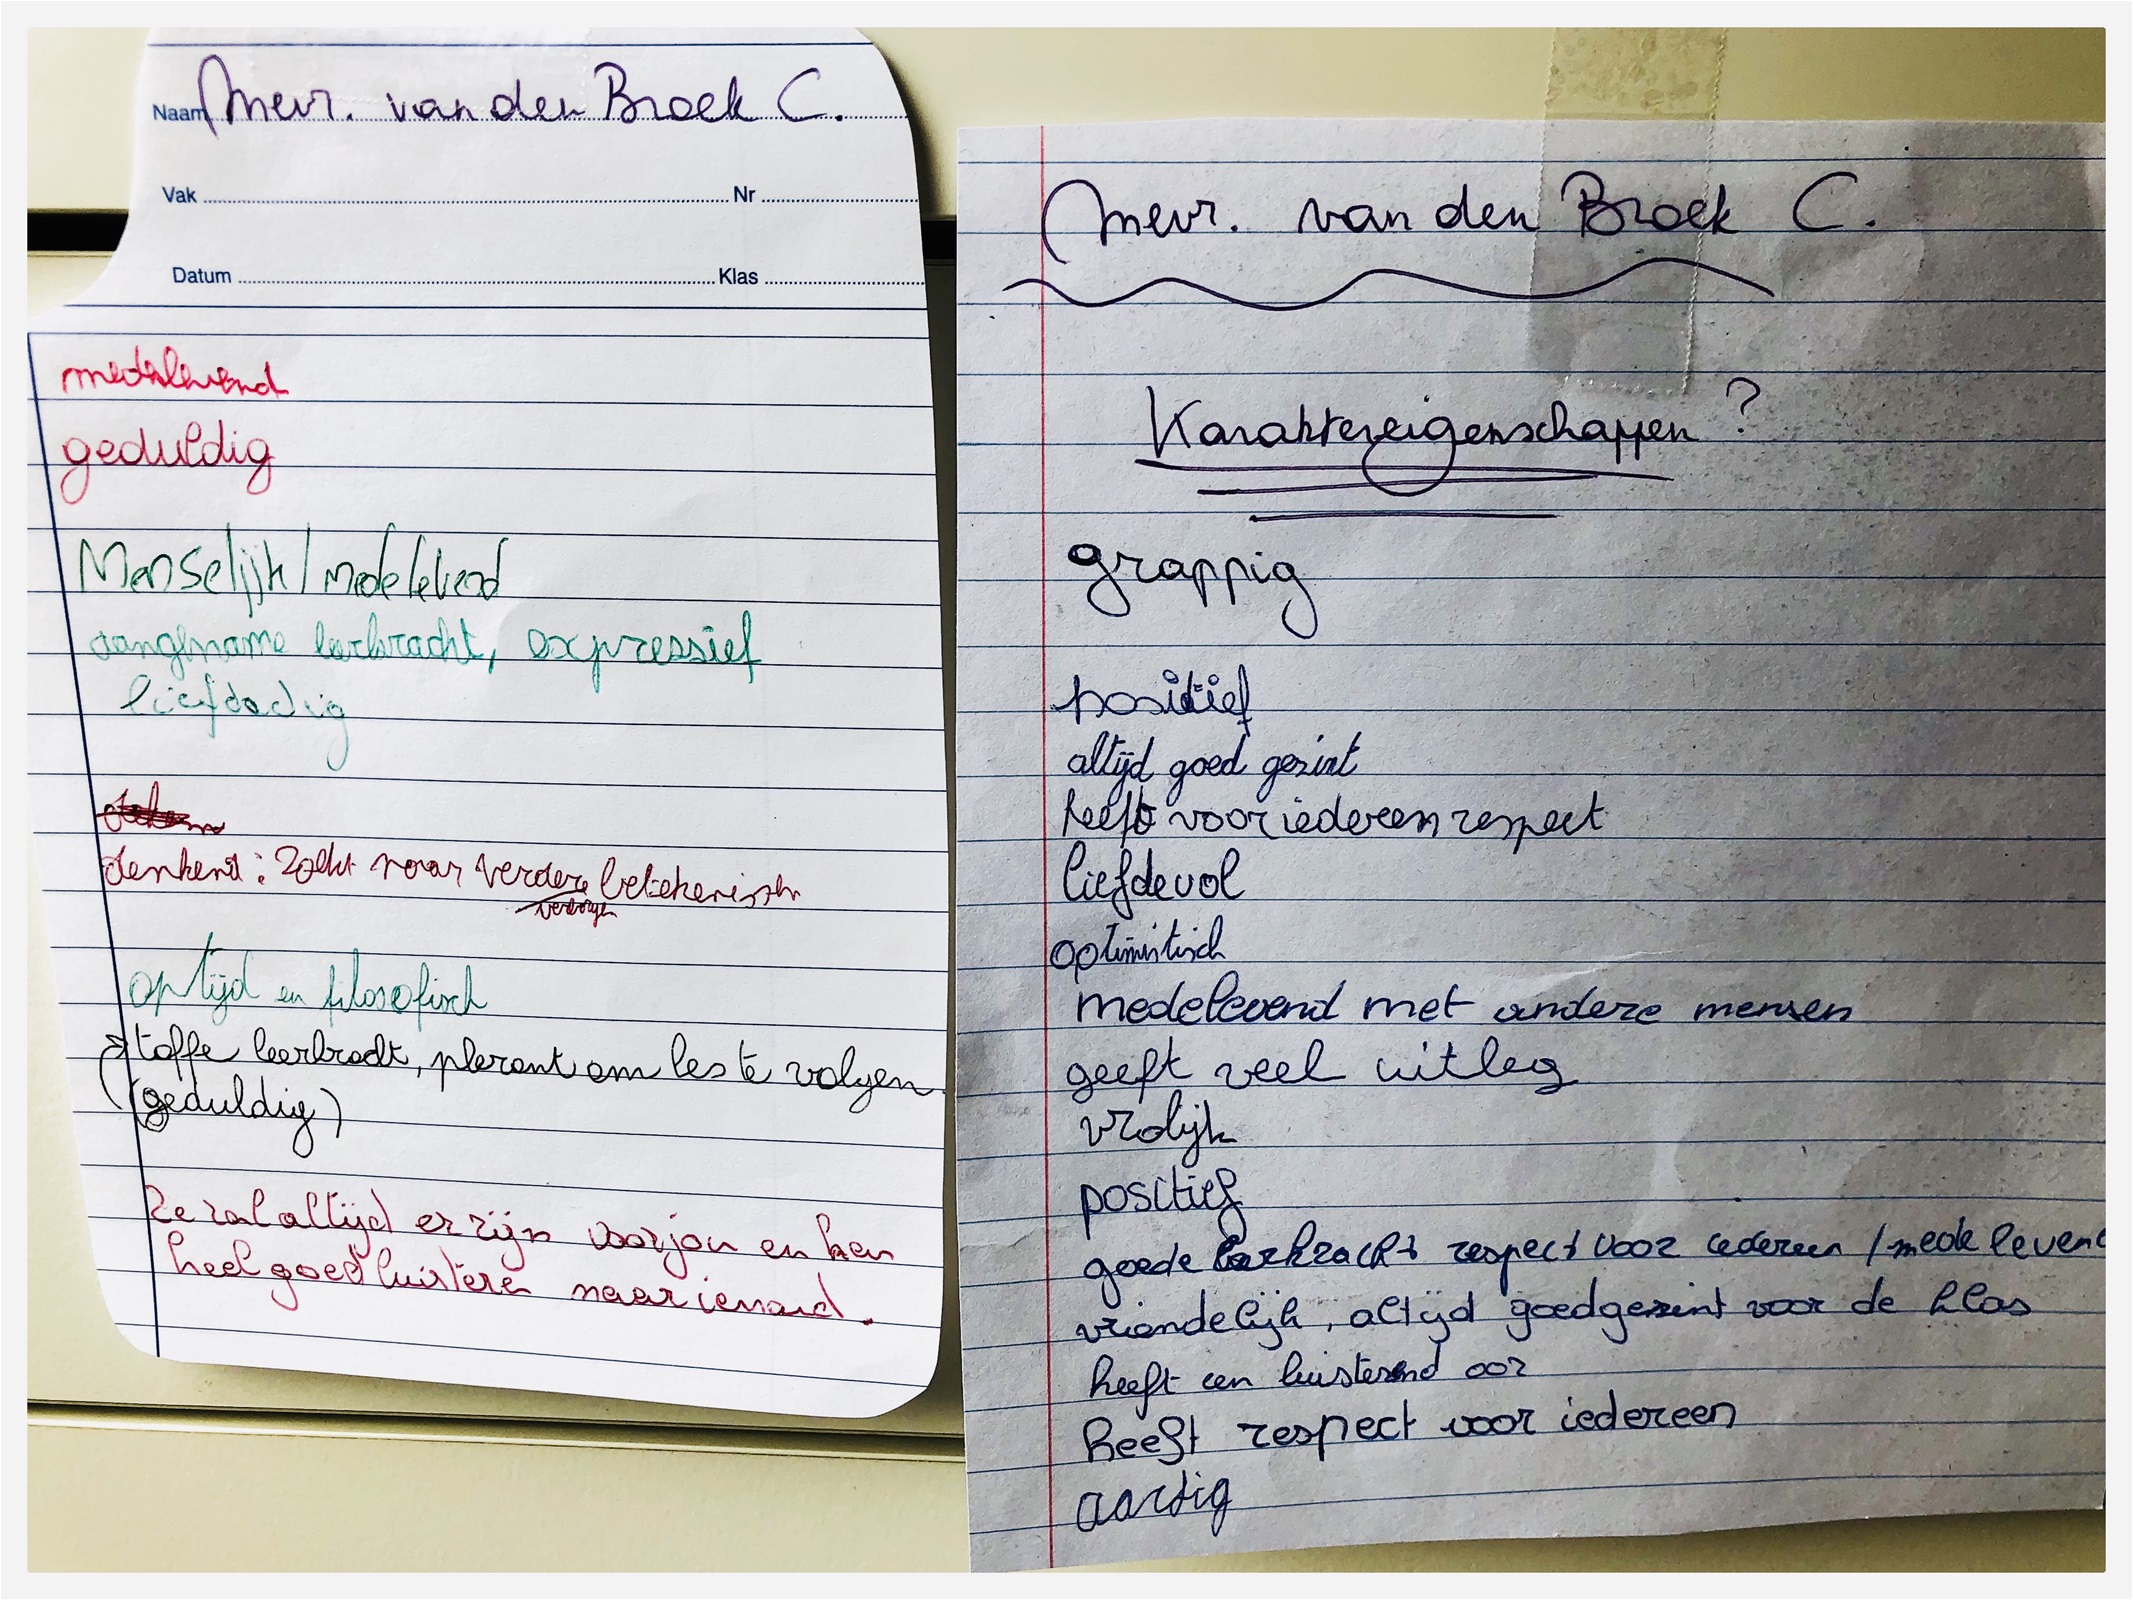 Naam Mevr. van den Broek C.
Vak Nr
Datum Klas
medelevend
geduldig
Menselijk / medelevend
aangename leerkracht, expressief
liefdadig
denkend : zoekt naar verdere betekenissen
verborgen
op tijd en filosofisch
toffe leerkracht, plezant om les te volgen
(geduldig)
Ze zal altijd er zijn voor jou en kan
heel goed luisteren naar iemand.
Mevr. van den Broek C.
Karaktereigenschappen ?
grappig
positief
altijd goed gezint
heeft voor iedereen respect
liefdevol
optimistisch
medelevend met andere mensen
geeft veel uitleg
vrolijk
positief
goede leerkracht respect voor iedereen / medelevend
vriendelijk, altijd goedgezint voor de klas
heeft een luisterend oor
heeft respect voor iedereen
aardig